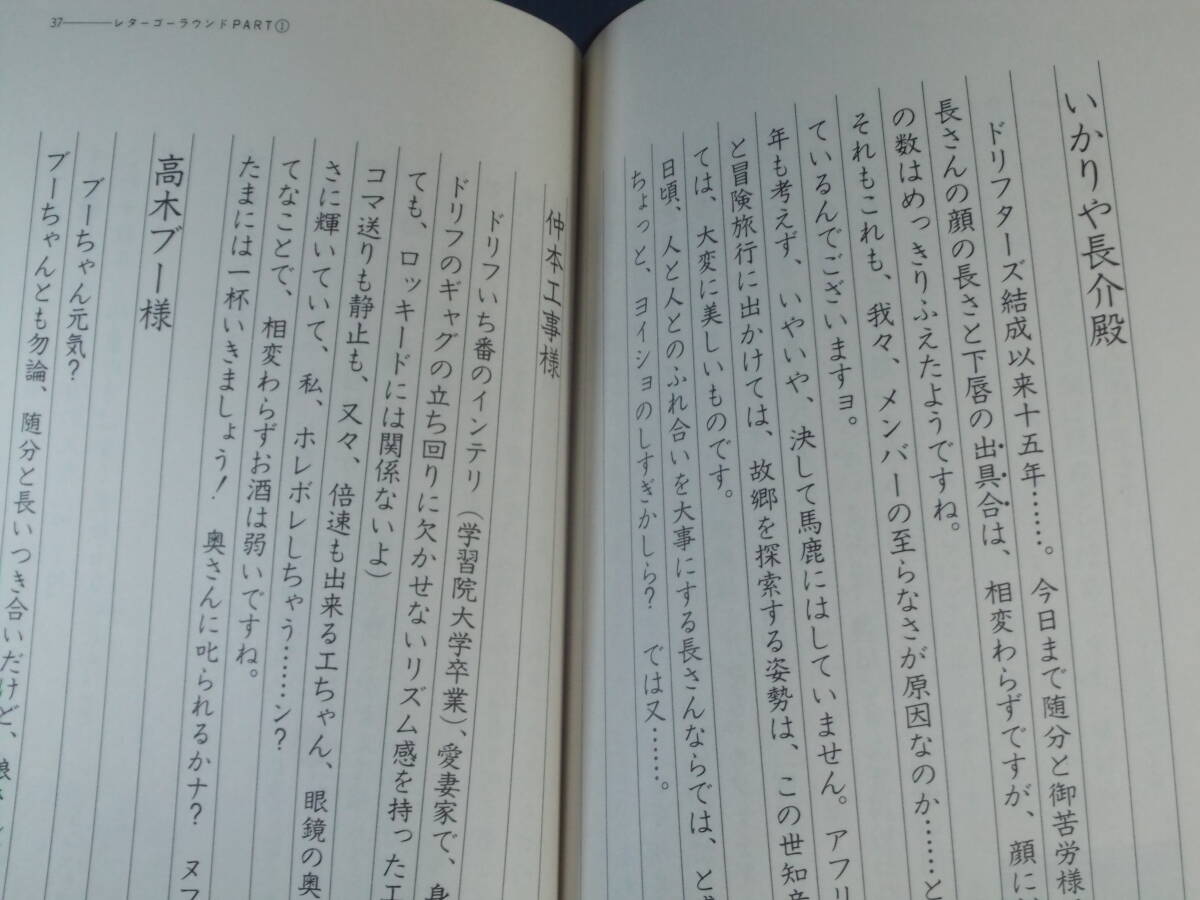 いかりや長介殿
ドリフターズ結成以来十五年……。今日まで随分と御苦労様
長さんの顔の長さと下唇の出具合は、相変わらずですが、顔に
の数はめっきりふえたようですね。
それもこれも、我々、メンバーの至らなさが原因なのか……と
ているんでございますョ。
年も考えず、いやいや、決して馬鹿にはしていません。アフリ
と冒険旅行に出かけては、故郷を探索する姿勢は、この世知
ては、大変に美しいものです。
日頃、人と人とのふれ合いを大事にする長さんならでは、と
ちょっと、ヨイショのしすぎかしら？では又……。
37 レターゴーラウンドPART①
仲本工事様
ドリフいち番のインテリ（学習院大学卒業）、愛妻家で、身
ドリフのギャグの立ち回りに欠かせないリズム感を持った工
ても、ロッキードには関係ないよ）
コマ送りも静止も、又々、倍速も出来る工ちゃん、眼鏡の奥
さに輝いていて、私、ホレボレしちゃう……ン？
てなことで、相変わらずお酒は弱いですね。
たまには一杯いきましょう！奥さんに叱られるかナ？ヌフ
高木ブー様
ブーちゃん元気？
ブーちゃんとも勿論、随分と長いつき合いだけど、